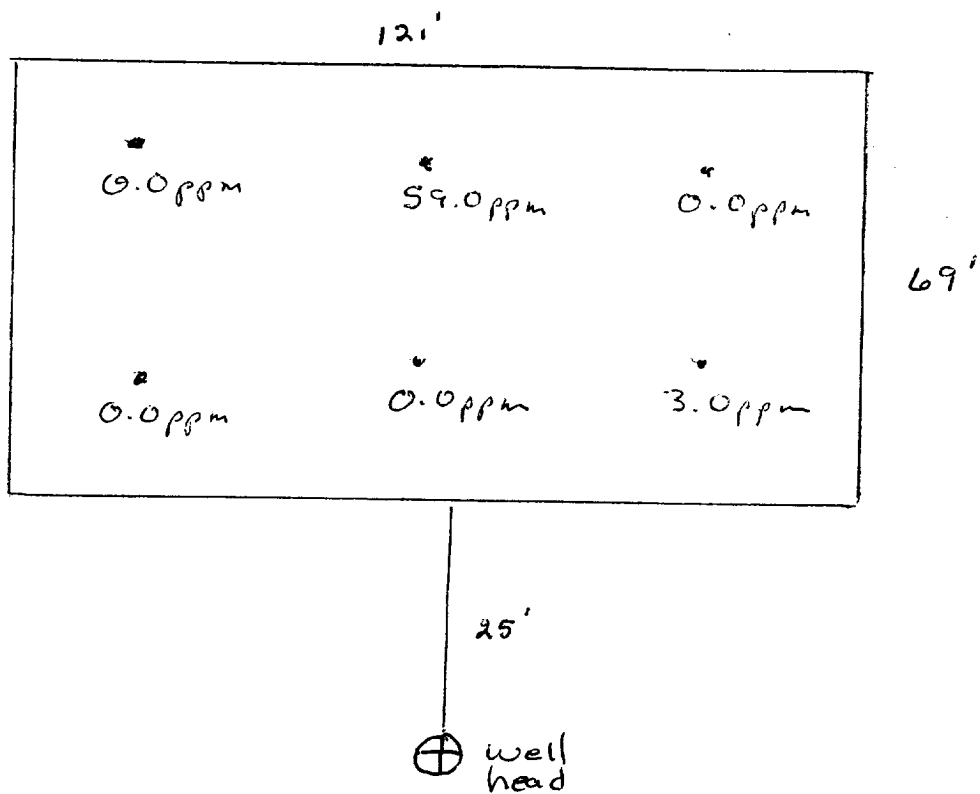 121'
0.0ppm 59.0ppm 0.0ppm
69'
0.0ppm 0.0ppm 3.0ppm
25'
well
head